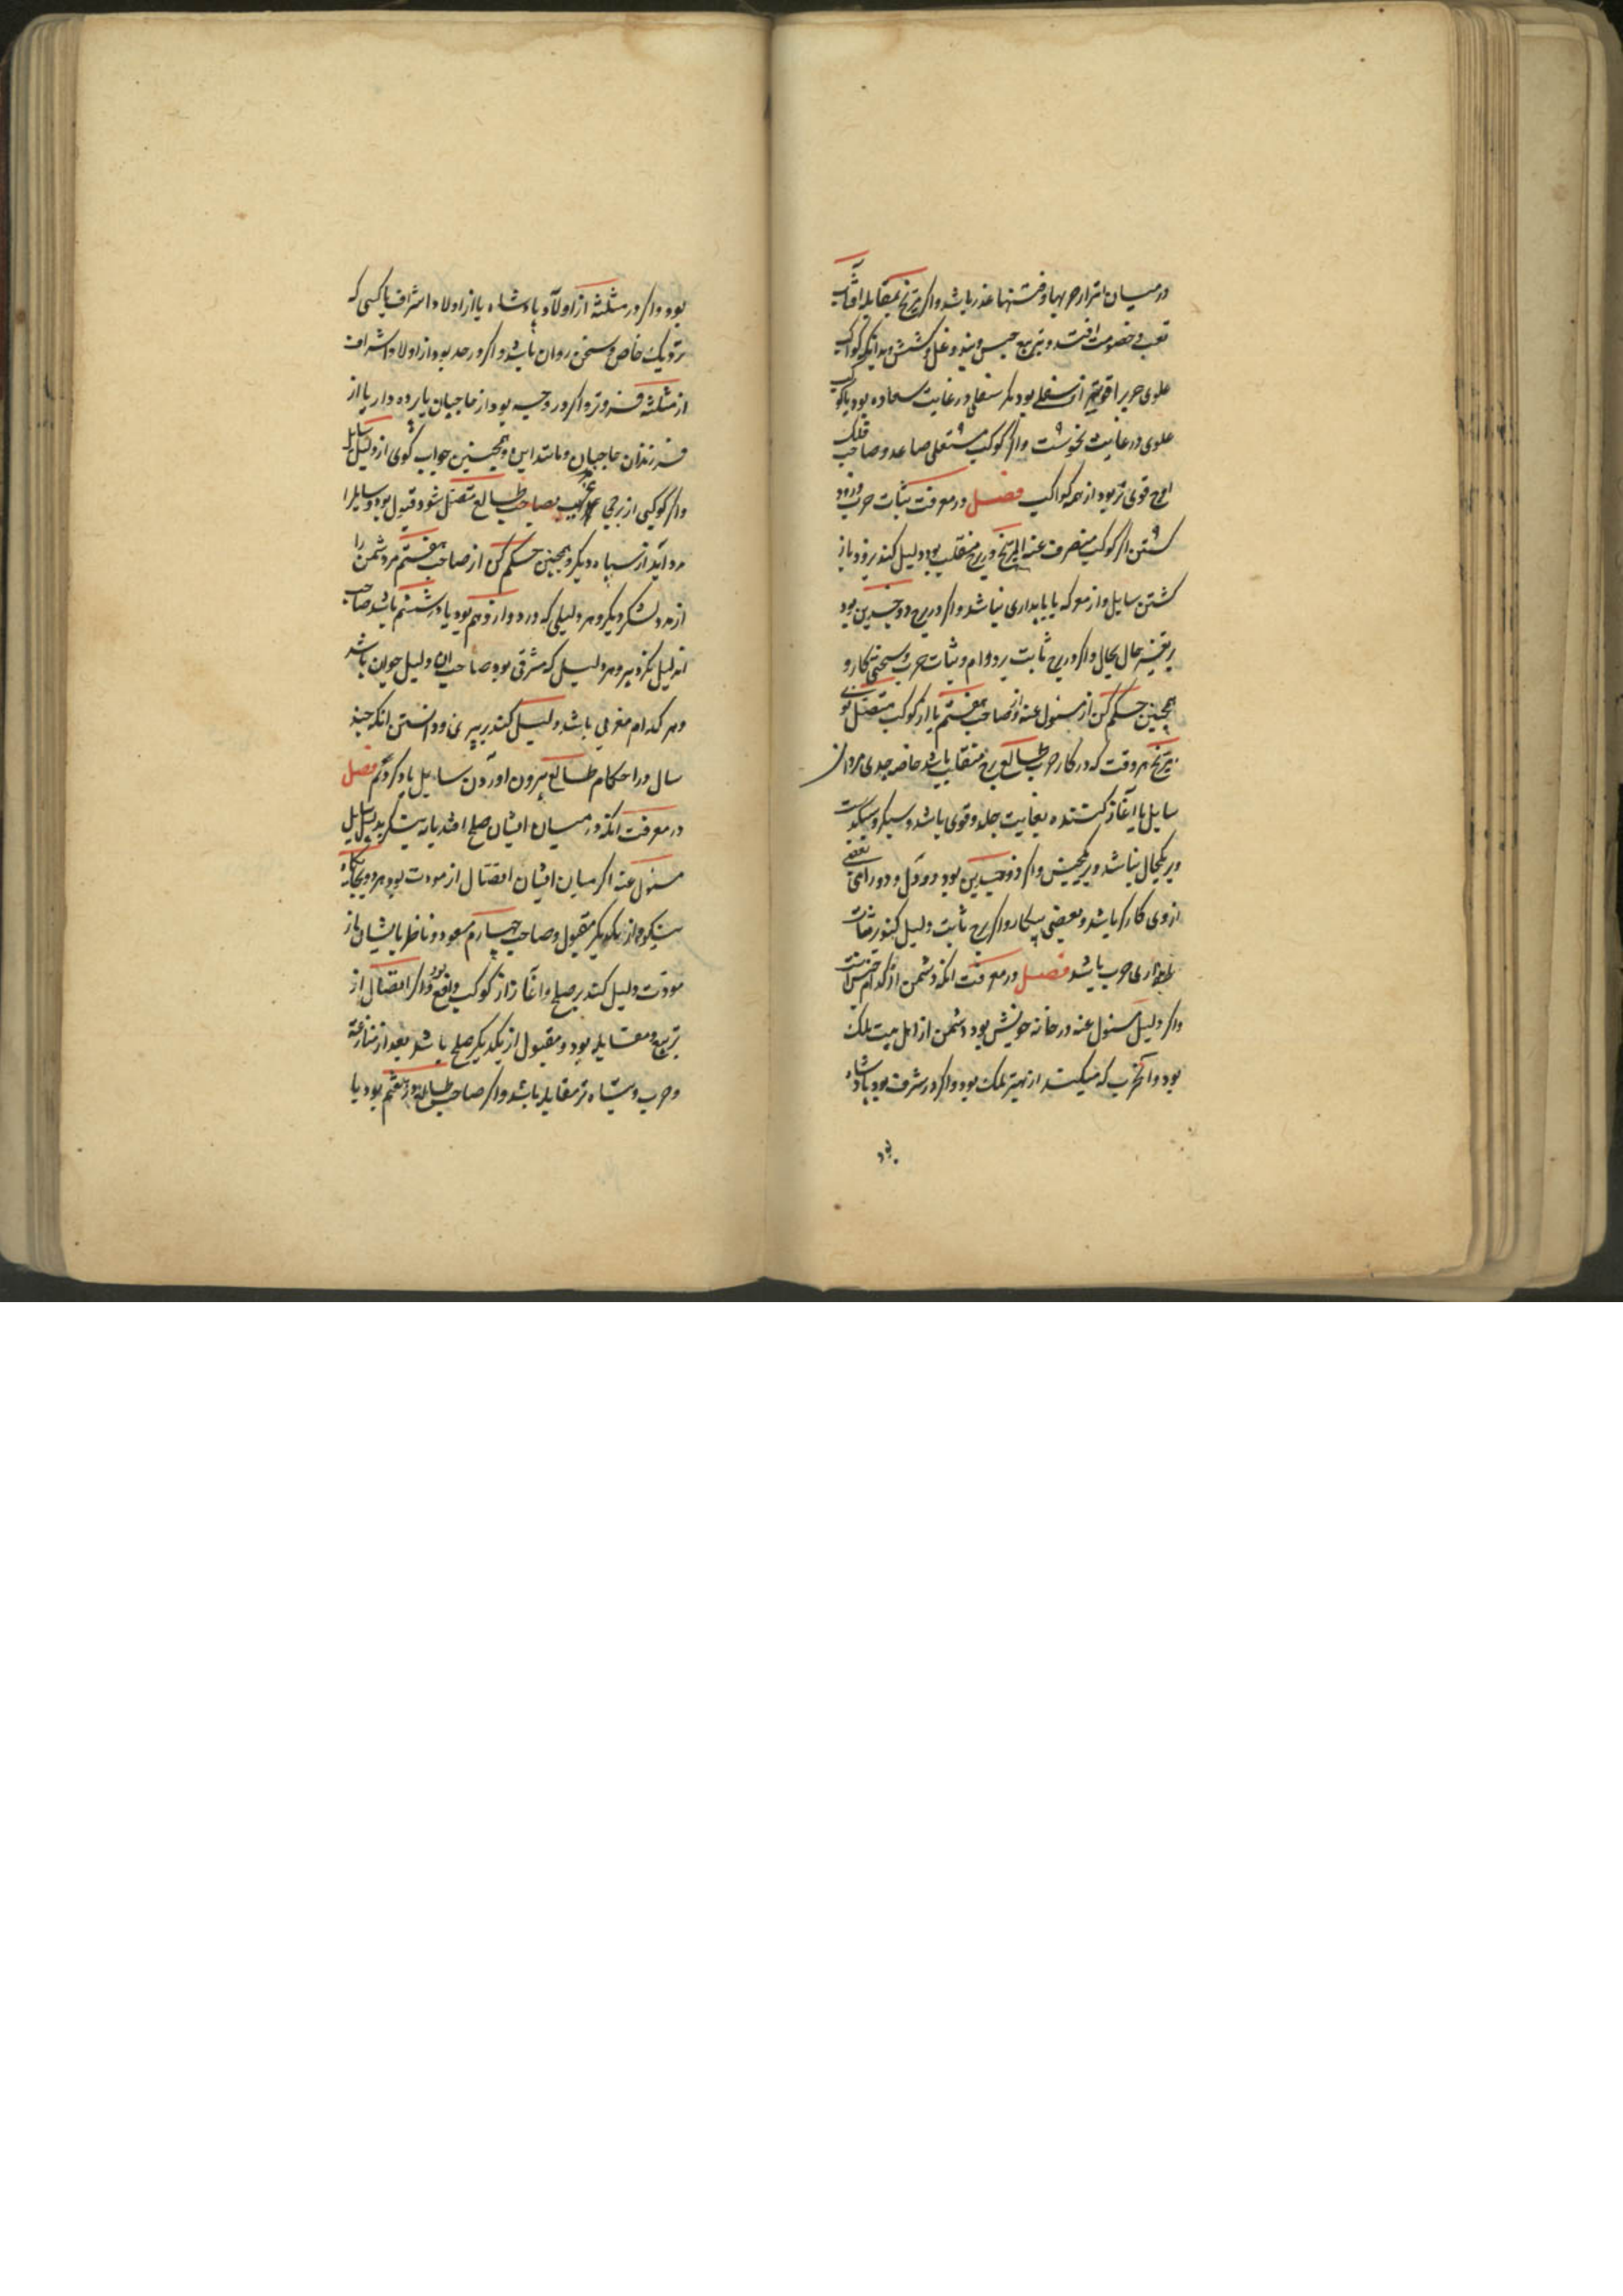 در میان باشد از حربها و فتنها عذر باشد و اگر مریخ بمقابله آفتاب
تعب و خصومت افتد و بتربیع حبس و بند و غل و کشش و بدانکه کواکب
علوی حرب را قویتر از سفلی بود مگر سفلی در غایت سعاده بود یا کوکب
علوی در غایت نحوست و اگر کوکب سفلی صاعد و صاحب فلک
اوج قوی تر بود از همه کواکب فصل در معرفت ثبات حرب و زود
کشتن اگر کوکب منصرف عنه المریخ در برج منقلب بود دلیل کند بر زود باز
کشتن سایل و از معرکه با پایداری نباشد و اگر در برج ذوجسدین بود
بر تغیر حال بحال و اگر در برج ثابت بر دوام و ثبات حرب و سختی کار و
همچنین حکم کن از مسئول عنه و از صاحب هفتم یا از کوکب متصل
مریخ هر وقت که در کار حرب طالع برج منقلب باشد خاصه جدی مردان
سایل یا آغاز کننده بغایت جلد و قوی باشد و سبکروح
و بر یکحال نباشد و همچنین و اگر ذوجسدین بود دو دل و دو رای بعضی
ازوی کارگر باشد و بعضی بیکار و اگر برج ثابت دلیل کند بر ثبات
حرب باشد فصل در معرفت انکه دشمن از کدام جنس است
و اگر دلیل مسئول عنه در خانه خویش بود دشمن از اهل بیت ملک
بود و آن حرب که میکند از بهر ملک بود و اگر در شرف بود پادشاه
بود
بود و اگر در مثلثه از اولاد پادشاه یا از اولاد اشراف یا کسی که
نزدیک خاص و سخن روان باشد و اگر در حد بود از اولاد اشراف
از مثلثه فروتر و اگر در وجه بود از حاجبان یا پرده دار یا از
فرزندان حاجبان و مانند این و همچنین جواب گوی از دلیل سایل
و اگر کوکبی از برجی غریب بصاحب طالع متصل شود و قبول بود سایل را
مدد آید از سپاه دیگر و همچنین حکم کن از صاحب هفتم مر دشمن را
از مدد لشکر دیگر و هر دلیلی که در دوازدهم بود یا در ششم باشد صاحب
ان دلیل نکرد پیر و هر دلیل که مشرقی بود صاحب ان دلیل جوان باشد
و هر کدام مغربی باشد دلیل کند بر پیری و دانستن انکه چند
سال در احکام طالع بیرون اوردن سایل یاد کردیم فصل
در معرفت انکه در میان ایشان صلح افتد یا نه بنگر بدلیل سایل
مسئول عنه اگر میان ایشان اتصال از مودت بود هر دو بجایگاه
نیکو و از یکدیگر مقبول و صاحب چهارم مسعود و ناظر بایشان از
مودت دلیل کند بر صلح و آغاز از کوکب دافع بود و اگر اتصال از
تربیع و مقابله بود و مقبول از یکدیگر صلح باشد بعد از منازعة
و حرب و تباه تر مقابله باشد و اگر صاحب طالع در هفتم بود یا